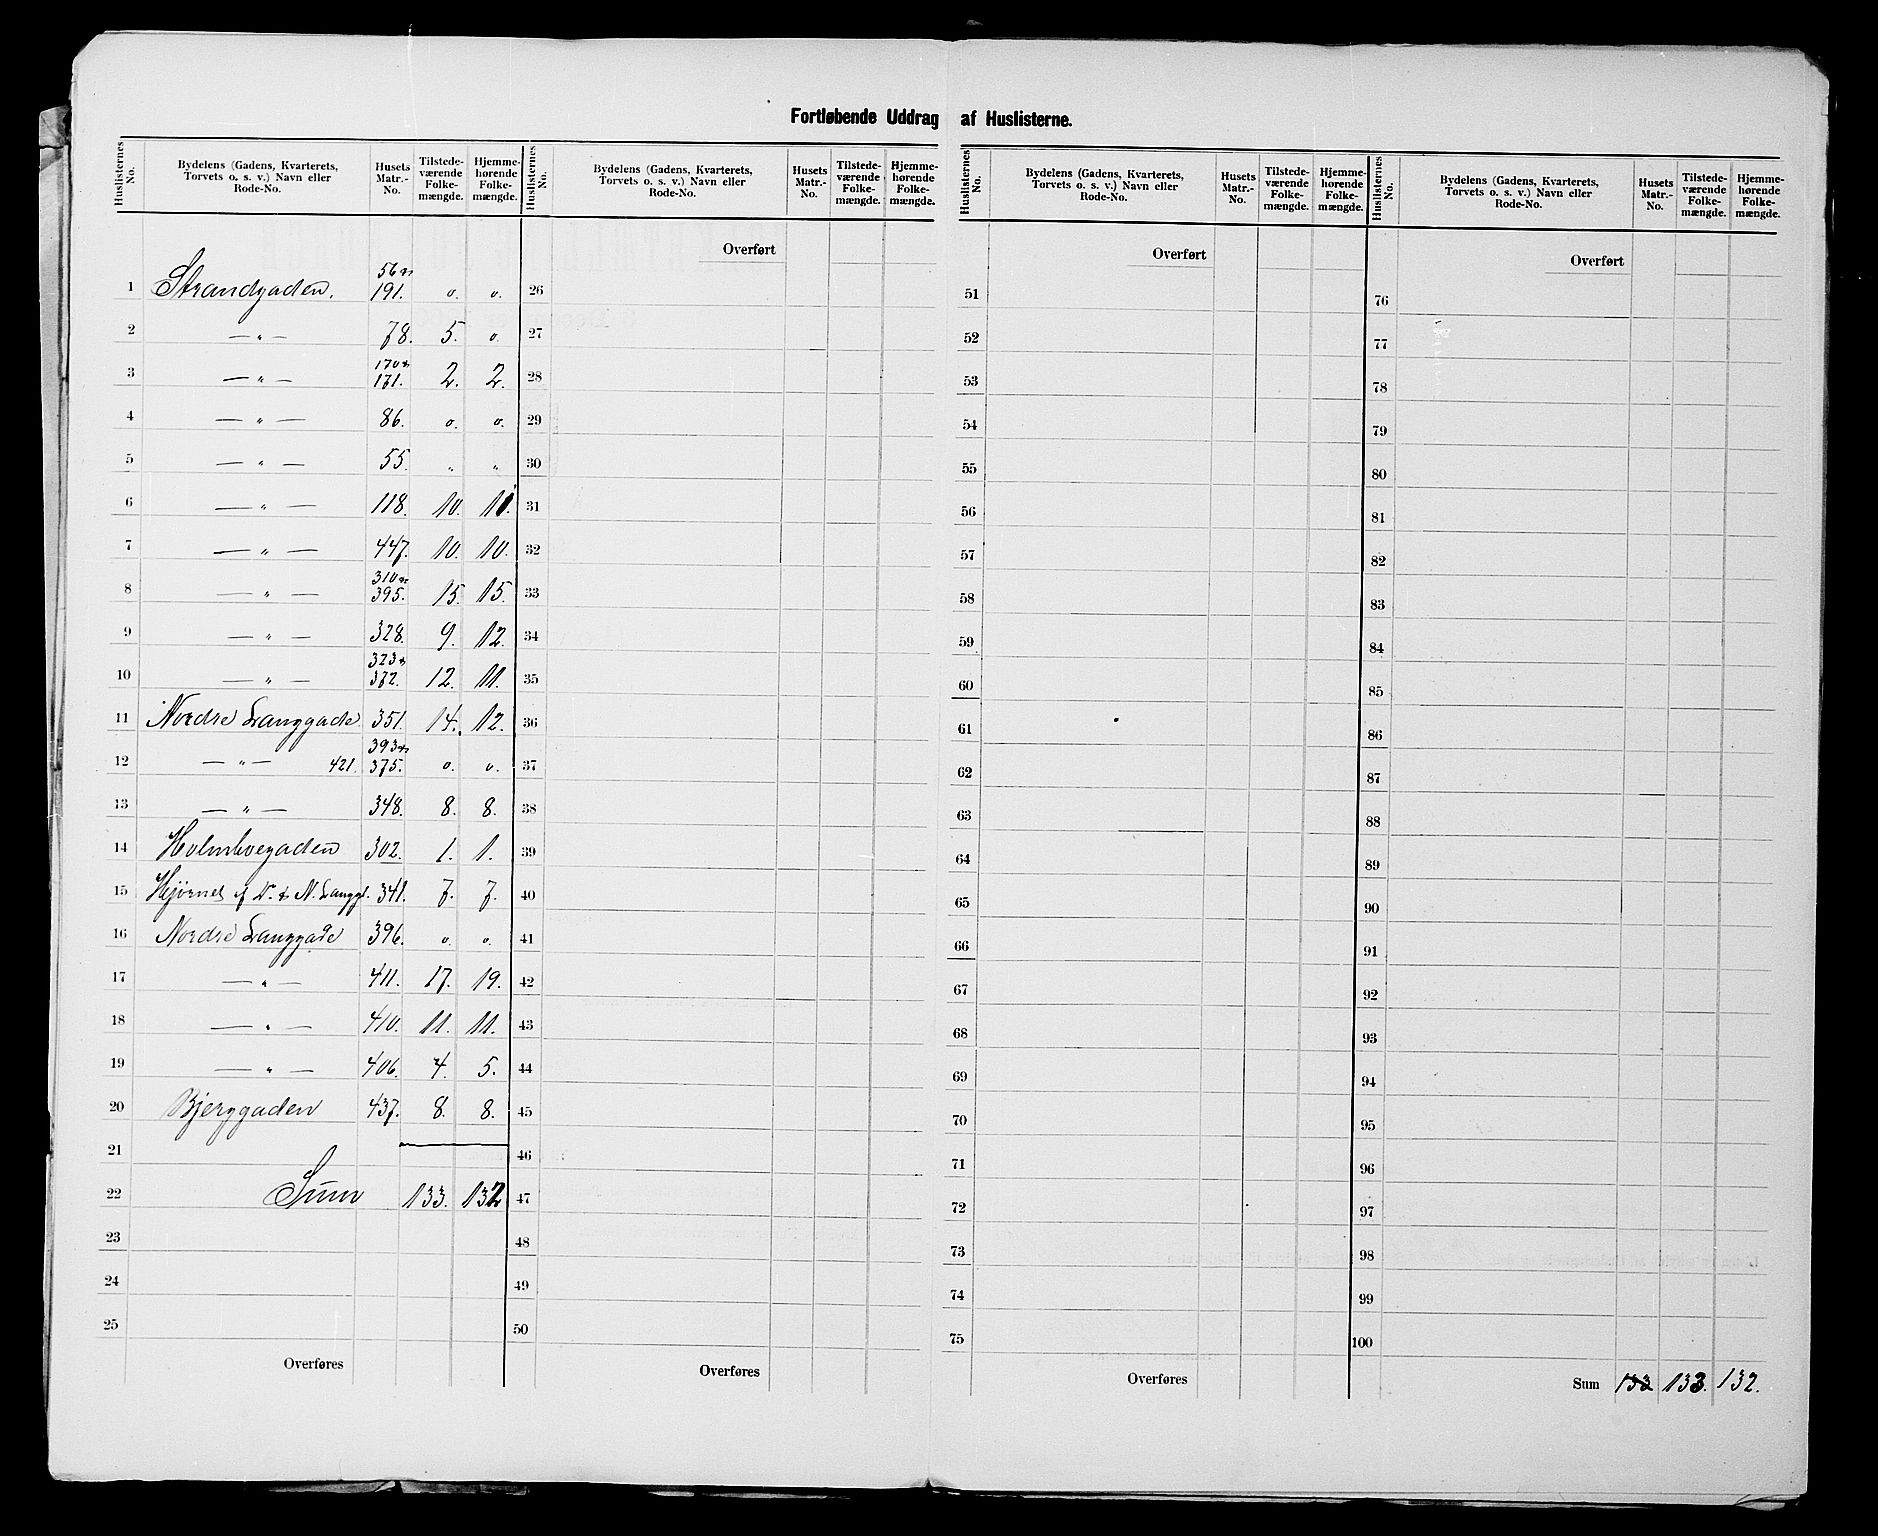 Fortløbende Uddrag af Huslisterne.
Huslisternes No. | Bydelens (Gadens, Kvarterets, Torvets o. s. v.) Navn eller Rode-No. | Husets Matr.-No. | Tilstedeværende Folkemængde. | Hjemmehørende Folkemængde.
Huslisternes No. | Bydelens (Gadens, Kvarterets, Torvets o. s. v.) Navn eller Rode-No. | Husets Matr.-No. | Tilstedeværende Folkemængde. | Hjemmehørende Folkemængde.
Huslisternes No. | Bydelens (Gadens, Kvarterets, Torvets o. s. v.) Navn eller Rode-No. | Husets Matr.-No. | Tilstedeværende Folkemængde. | Hjemmehørende Folkemængde.
Huslisternes No. | Bydelens (Gadens, Kvarterets, Torvets o. s. v.) Navn eller Rode-No. | Husets Matr.-No. | Tilstedeværende Folkemængde. | Hjemmehørende Folkemængde.
1 Strandgaden. 56 & 191. o. o.
2 — " — 78. 5. o.
3 — " — 170 & 171. 2. 2.
4 — " — 86. o. o.
5 — " — 55. " "
6 — " — 118. 10. 11.
7 — " — 447. 10. 10.
8 — " — 310 & 395. 15. 15.
9 — " — 328. 9. 12.
10 — " — 323 & 372. 12. 11.
11 Nordre Langgade. 351. 14. 12.
12 — " — 421. 393 & 375. o. o.
13 — " — 348. 8. 8.
14 Holmbvegaden 302. 1. 1.
15 Hjørnet af V. & N. Langg. 341. 7. 7.
16 Nordre Langgade 396. o. o.
17 — " — 411. 17. 19.
18 — " — 410. 11. 11.
19 — " — 406. 4. 5.
20 Bjerggaden 437. 8. 8.
21
22 Sum 133. 132
23
24
25
Overføres
Overført
26
27
28
29
30
31
32
33
34
35
36
37
38
39
40
41
42
43
44
45
46
47
48
49
50
Overføres
Overført
51
52
53
54
55
56
57
58
59
60
61
62
63
64
65
66
67
68
69
70
71
72
73
74
75
Overføres
Overført
76
77
78
79
80
81
82
83
84
85
86
87
88
89
90
91
92
93
94
95
96
97
98
99
100
Sum 132 133. 132.